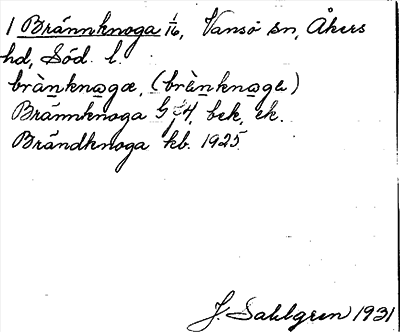 1 Brännknoga 1/16, Vansö sn, Åkers
hd, Söd. l.
brànknoga, (brènknoga)
Brännknoga G 4, bek, ek.
Brändknoga kb. 1925.
J. Sahlgren 1931